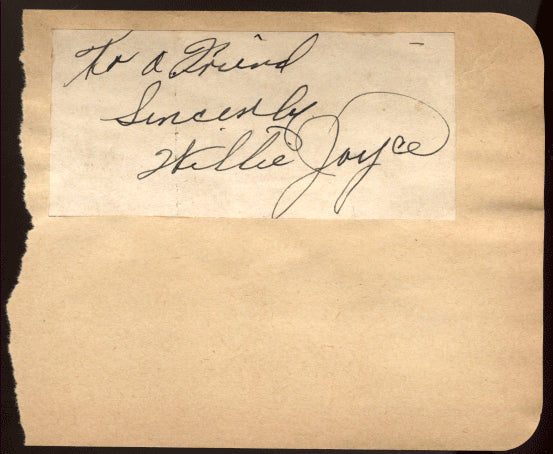 To a Friend
Sincerely
Willie Joyce